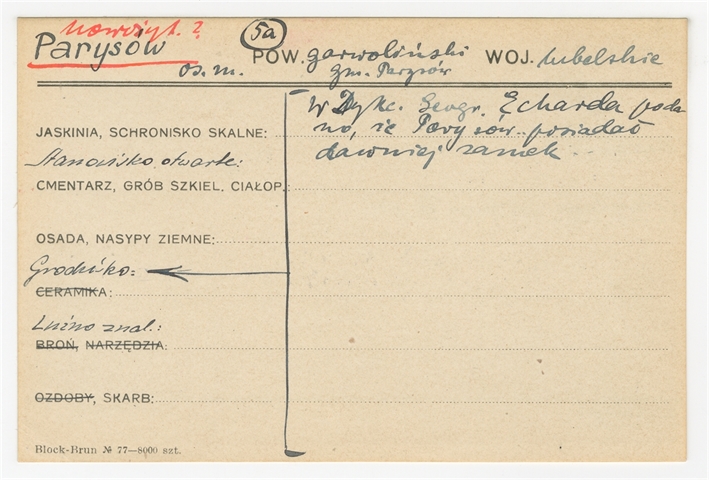 nowożyt. ?
5a
Parysów
os. m.
POW. garwoliński WOJ. lubelskie
gm. Parysów
W Dykc. Geogr. Echarda poda
no, iż Parysów posiadał
dawniej zamek
JASKINIA, SCHRONISKO SKALNE:
Stanowisko otwarte:
CMENTARZ, GRÓB SZKIEL. CIAŁOP.:
OSADA, NASYPY ZIEMNE:
Grodzisko:
CERAMIKA:
Luźno znal.:
BROŃ, NARZĘDZIA:
OZDOBY, SKARB:
Block-Brun № 77—8000 szt.